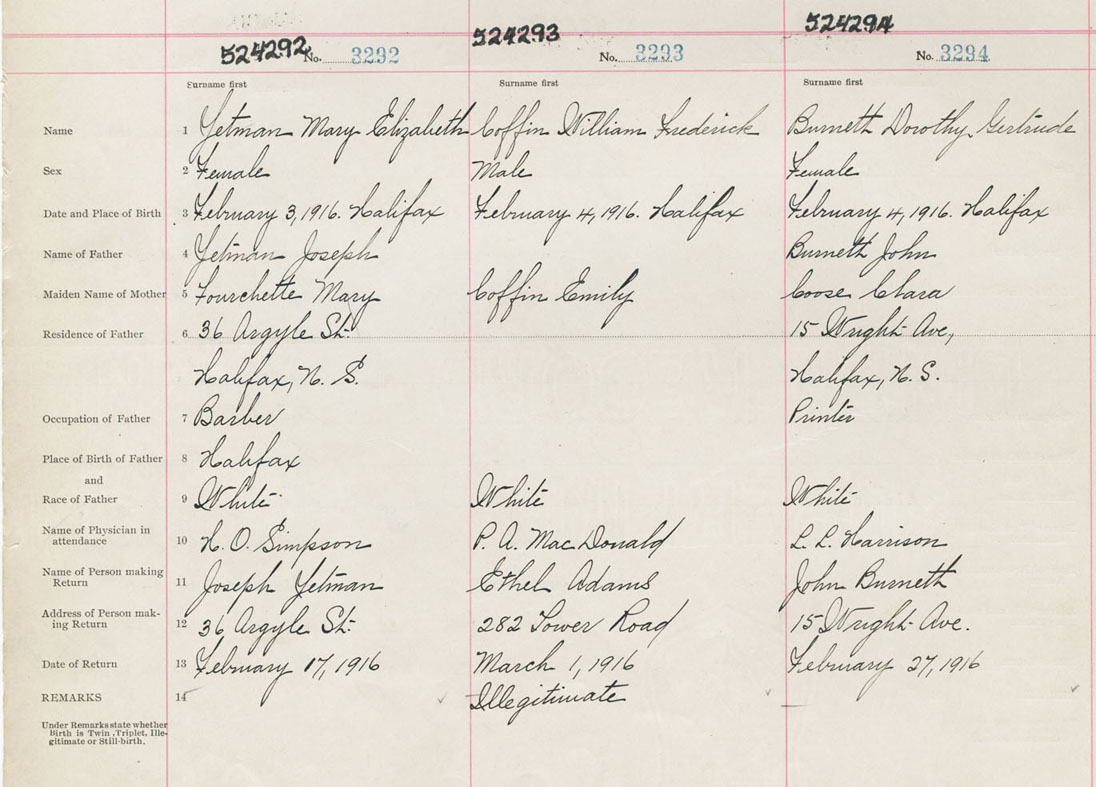 524292 No. 3292 524293 No. 3293 524294 No. 3294
Surname first Surname first Surname first
Name 1 Yetman Mary Elizabeth Coffin William Frederick Burnett Dorothy Gertrude
Sex 2 Female Male Female
Date and Place of Birth 3 February 3, 1916. Halifax February 4, 1916. Halifax February 4, 1916. Halifax
Name of Father 4 Yetman Joseph Burnett John
Maiden Name of Mother 5 Fourchette Mary Coffin Emily Coose Clara
Residence of Father 6 36 Argyle St. 15 Wright Ave,
Halifax, N. S. Halifax, N. S.
Occupation of Father 7 Barber Printer
Place of Birth of Father 8 Halifax
and
Race of Father 9 White White White
Name of Physician in
attendance 10 H. O. Simpson P. A. MacDonald L. L. Harrison
Name of Person making
Return 11 Joseph Yetman Ethel Adams John Burnett
Address of Person mak-
ing Return 12 36 Argyle St. 282 Tower Road 15 Wright Ave.
Date of Return 13 February 17, 1916 March 1, 1916 February 27, 1916
REMARKS 14 Illegitimate
Under Remarks state whether
Birth is Twin, Triplet, Ille-
gitimate or Still-birth.